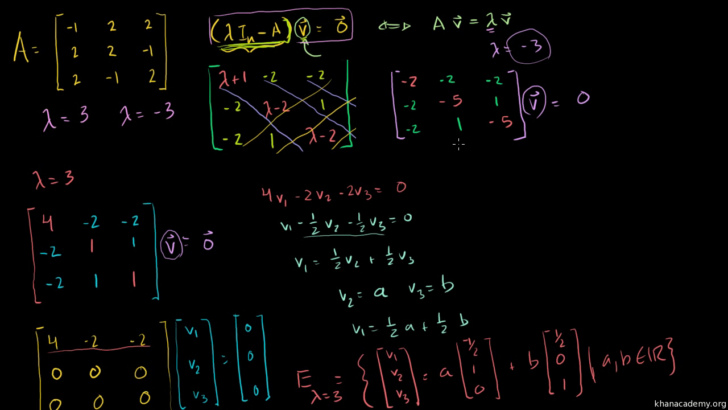 A = [ -1 2 2
2 2 -1
2 -1 2 ]
λ = 3 λ = -3
(λIₙ - A) v⃗ = 0⃗ ⟺ A v⃗ = λ v⃗
λ = -3
[ λ+1 -2 -2
-2 λ-2 1
-2 1 λ-2 ]
[ -2 -2 -2
-2 -5 1
-2 1 -5 ] v⃗ = 0
λ = 3
[ 4 -2 -2
-2 1 1
-2 1 1 ] v⃗ = 0⃗
4v₁ - 2v₂ - 2v₃ = 0
v₁ - 1/2 v₂ - 1/2 v₃ = 0
v₁ = 1/2 v₂ + 1/2 v₃
v₂ = a v₃ = b
v₁ = 1/2 a + 1/2 b
[ 4 -2 -2
0 0 0
0 0 0 ] [ v₁ v₂ v₃ ] = [ 0 0 0 ]
E λ=3 = { [ v₁ v₂ v₃ ] = a [ 1/2 1 0 ] + b [ 1/2 0 1 ] | a, b ∈ ℝ }
khanacademy.org